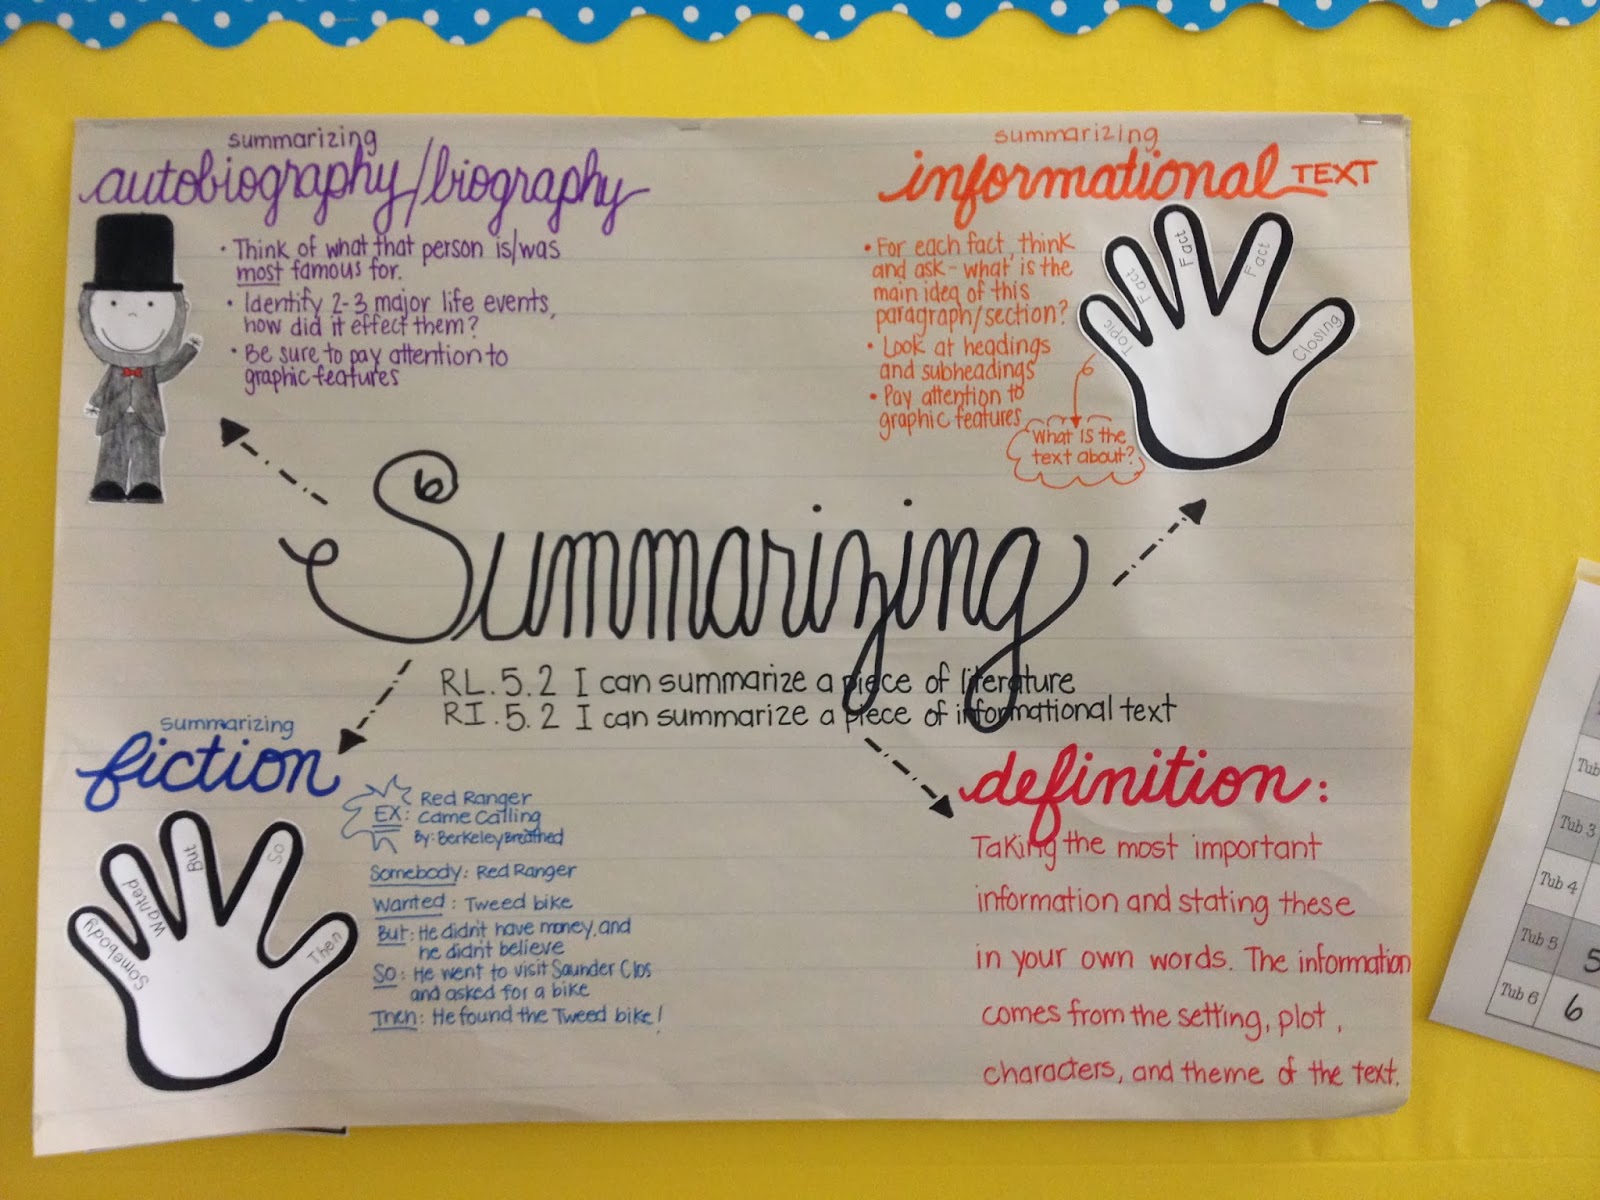 summarizing
autobiography/biography
• Think of what that person is/was
most famous for.
• Identify 2-3 major life events,
how did it effect them?
• Be sure to pay attention to
graphic features
summarizing
informational TEXT
• For each fact, think
and ask - what is the
main idea of this
paragraph/section?
• Look at headings
and subheadings
• Pay attention to
graphic features
What is the
text about?
Topic
Fact
Fact
Fact
Closing
Summarizing
RL.5.2 I can summarize a piece of literature
RI.5.2 I can summarize a piece of informational text
summarizing
fiction
Somebody
Wanted
But
So
Then
Red Ranger
EX: Came Calling
By: Berkeley Breathed
Somebody: Red Ranger
Wanted: Tweed bike
But: He didn't have money, and
he didn't believe
So: He went to visit Saunder Clos
and asked for a bike
Then: He found the Tweed bike!
definition:
Taking the most important
information and stating these
in your own words. The information
comes from the setting, plot,
characters, and theme of the text.
Tub
Tub 3
Tub 4
Tub 5 5
Tub 6 6